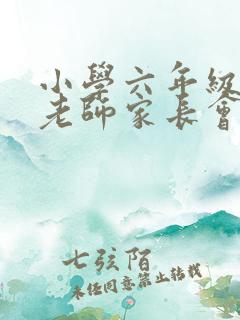 小學六年級
老師家長會
七弦陌
未經同意禁止轉載